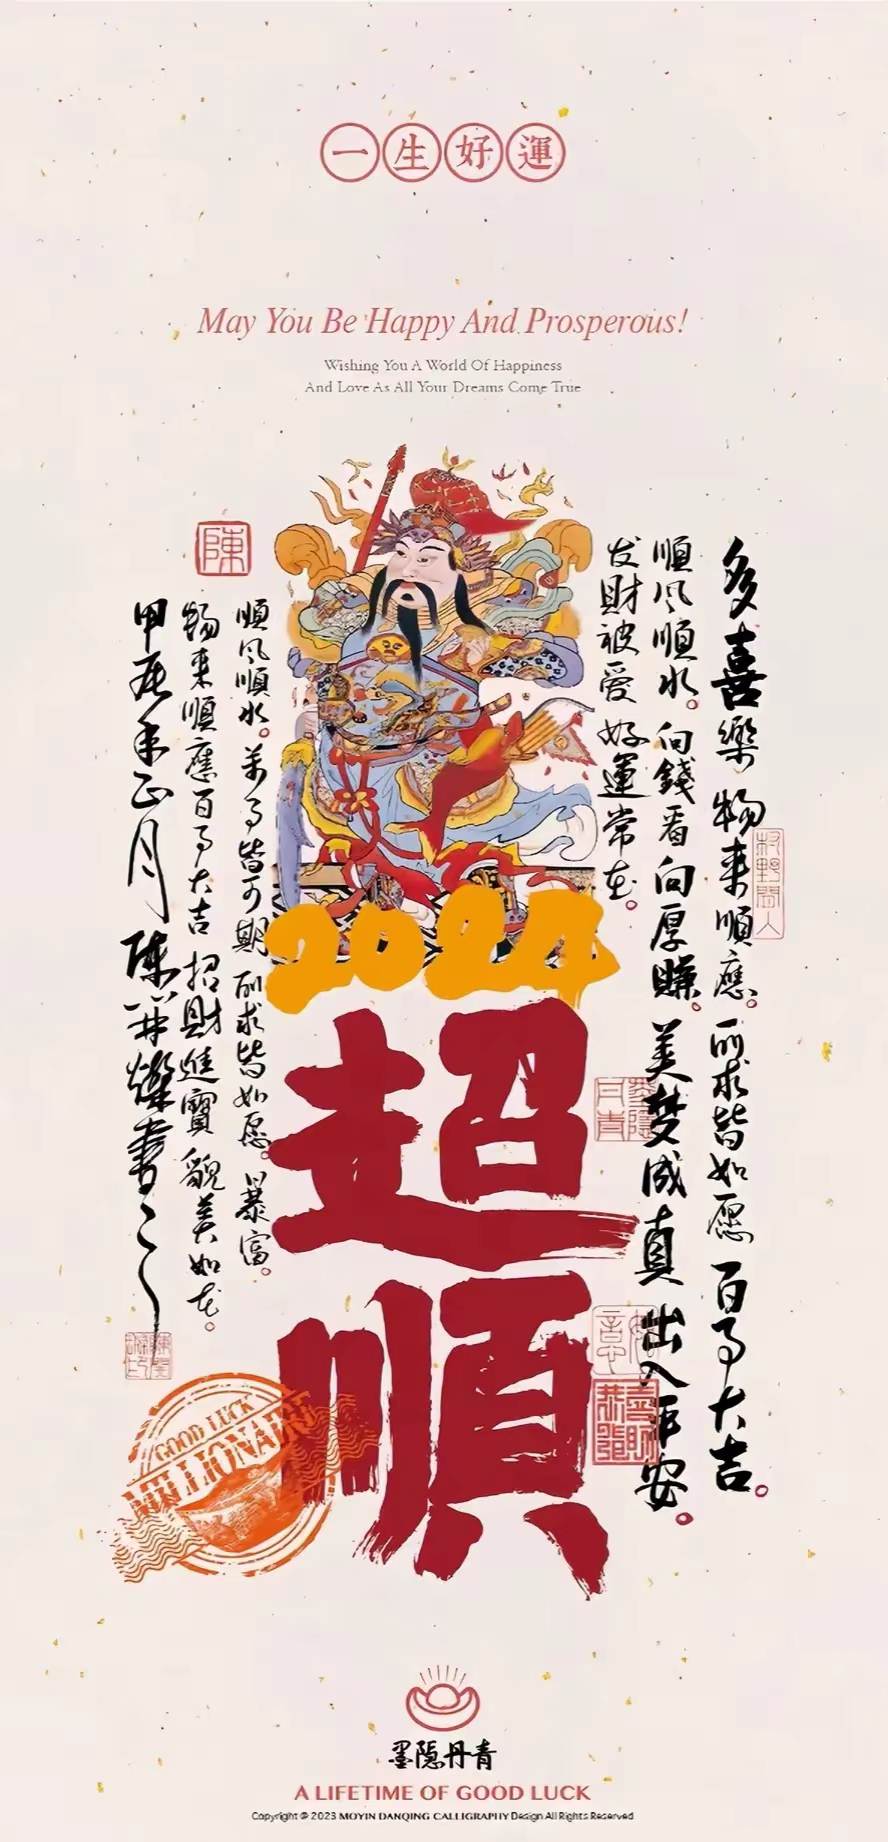 一生好運
May You Be Happy And Prosperous!
Wishing You A World Of Happiness
And Love As All Your Dreams Come True
多喜樂 物来順應。所求皆如愿 百事大吉。
順风順水。向錢看向厚賺。美梦成真 出入平安。
发財被爱 好運常在。
2024
超順
陳
順风順水。万事皆可期 所求皆如愿。暴富。
物来順應百事大吉 招財進寶 貌美如花。
甲辰年正月 陳 書
GOOD LUCK
MILLIONAIRE
墨隱丹青
A LIFETIME OF GOOD LUCK
Copyright © 2023 MOYIN DANQING CALLIGRAPHY Design All Rights Reserved